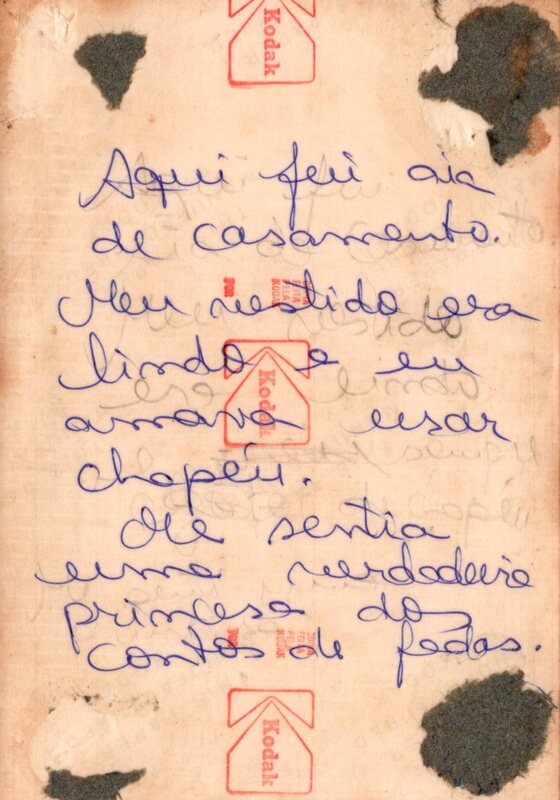 Kodak
Aqui fui aia
de casamento.
Meu vestido era
lindo e eu
amava usar
chapéu.
Me sentia
uma verdadeira
princesa dos
contos de fadas.
Kodak
Kodak